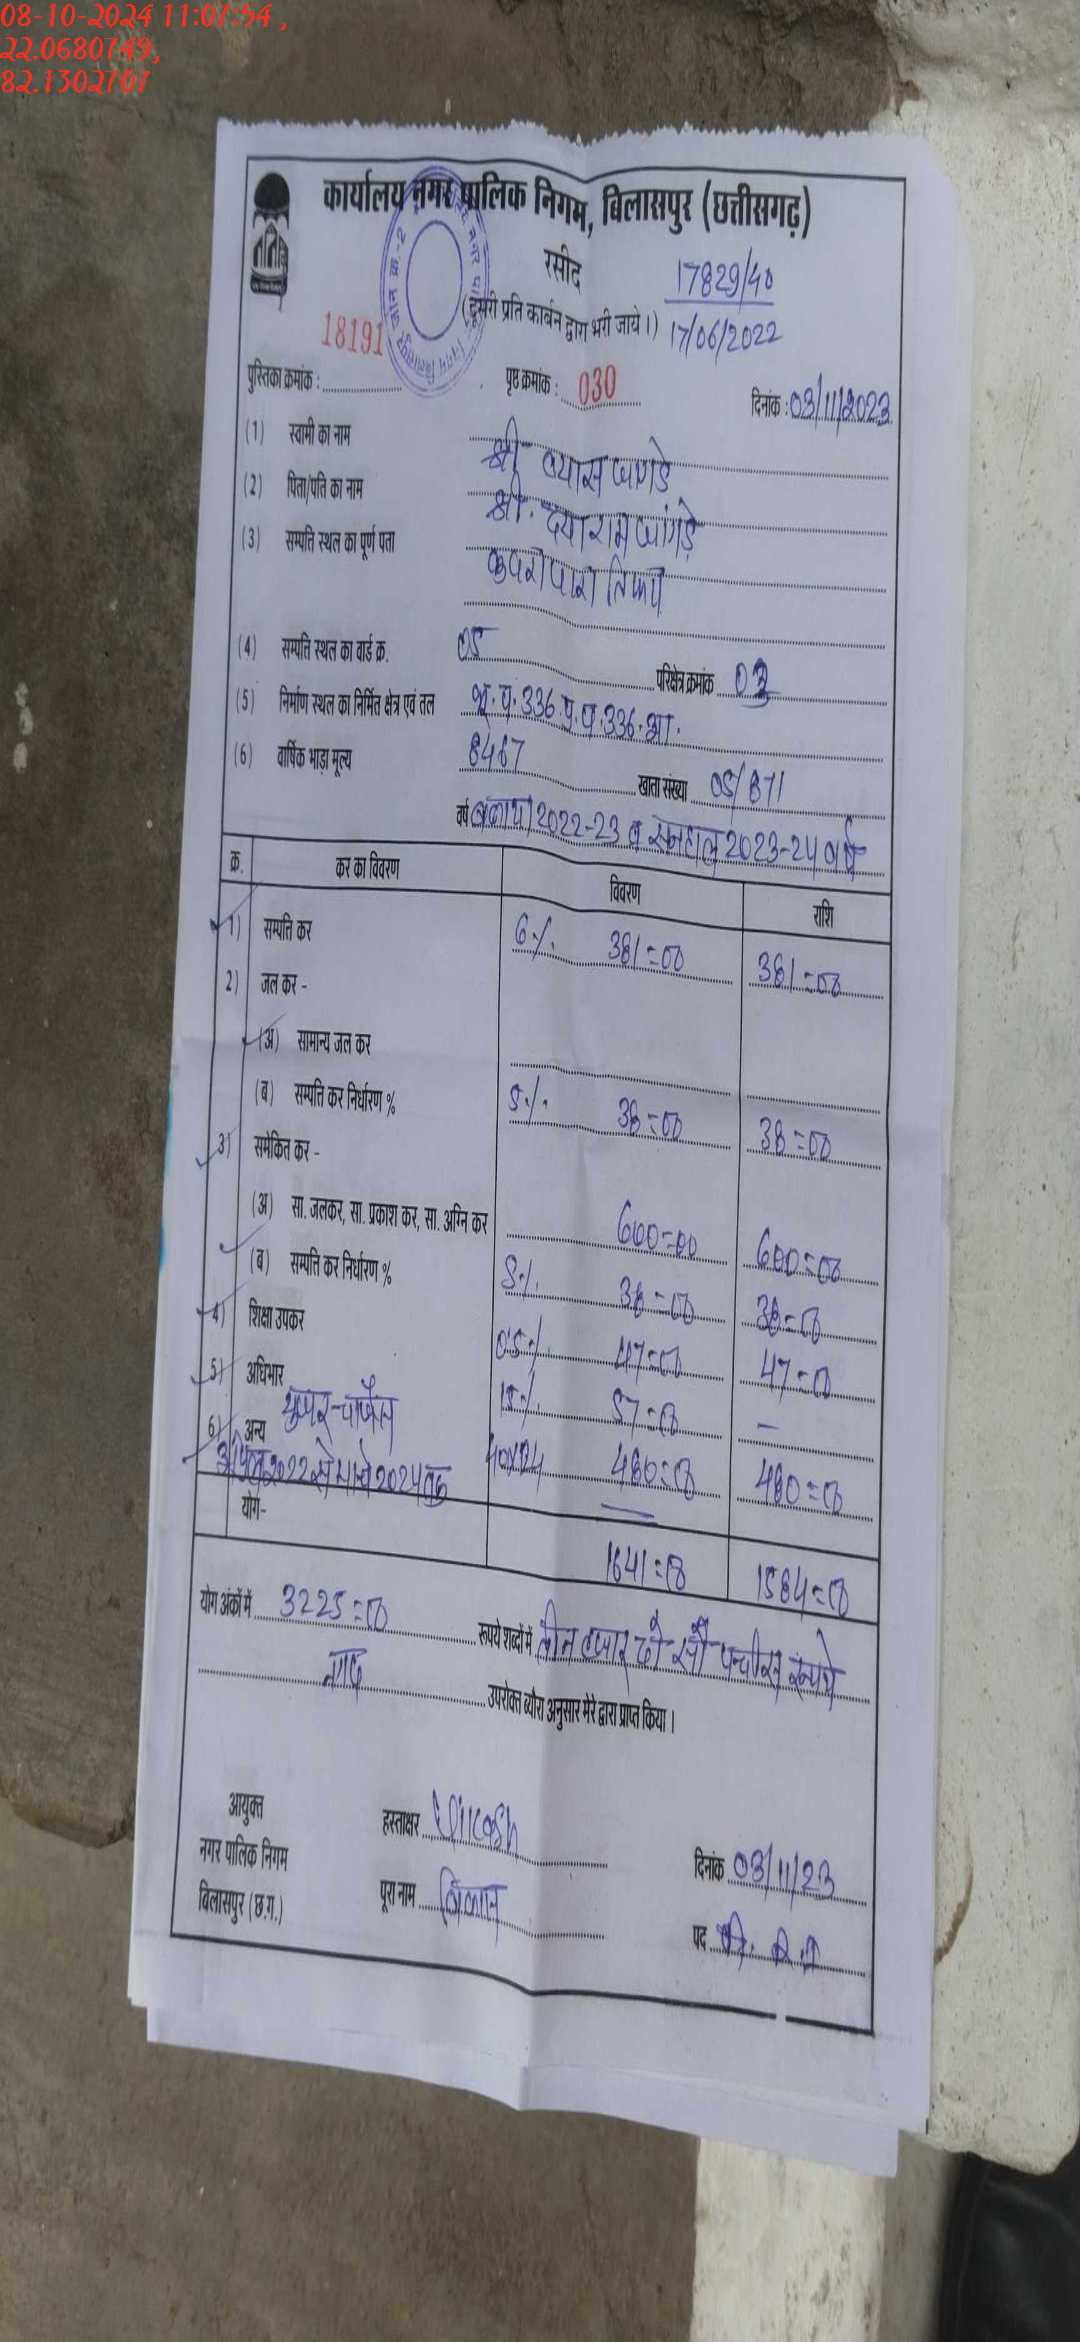 08-10-2024 11:07:54 ,
22.0680749,
82.1302707
कार्यालय नगर पालिक निगम, बिलासपुर (छत्तीसगढ़)
रसीद
17829/40
(दूसरी प्रति कार्बन द्वारा भरी जाये।) 17/06/2022
18191
पुस्तिका क्रमांक : पृष्ठ क्रमांक : 030 दिनांक : 03/11/2023
(1) स्वामी का नाम श्री व्यास जांगडे
(2) पिता/पति का नाम श्री. दयाराम जांगड़े
(3) सम्पत्ति स्थल का पूर्ण पता
(4) सम्पत्ति स्थल का वार्ड क्र. 05 परिक्षेत्र क्रमांक 03
(5) निर्माण स्थल का निर्मित क्षेत्र एवं तल भू.प. 336 प.प. 336. आ.
(6) वार्षिक भाड़ा मूल्य 8467 खाता संख्या 05/871
वर्ष बकाया 2022-23 व 2023-24 वर्ष
क्र. कर का विवरण विवरण राशि
1) सम्पत्ति कर 6% 381=00 381=00
2) जल कर -
(अ) सामान्य जल कर
(ब) सम्पत्ति कर निर्धारण % 5% 38=00 38=00
3) समेकित कर -
(अ) सा. जलकर, सा. प्रकाश कर, सा. अग्नि कर 600=00 600=00
(ब) सम्पत्ति कर निर्धारण % 5% 38=00 38=00
4) शिक्षा उपकर 0.5% 47=00 47=00
5) अधिभार 15% 57=00 -
6) अन्य युजर-चार्जेस
अप्रैल 2022 से मार्च 2024 तक 480=00 480=00
योग- 1641=00 1584=00
योग अंकों में 3225=00 रूपये शब्दों में तीन हजार दो सौ पच्चीस रूपये
नगद उपरोक्त ब्यौरा अनुसार मेरे द्वारा प्राप्त किया।
आयुक्त हस्ताक्षर Vikash
नगर पालिक निगम दिनांक 03/11/23
बिलासपुर (छ.ग.) पूरा नाम विकास
पद